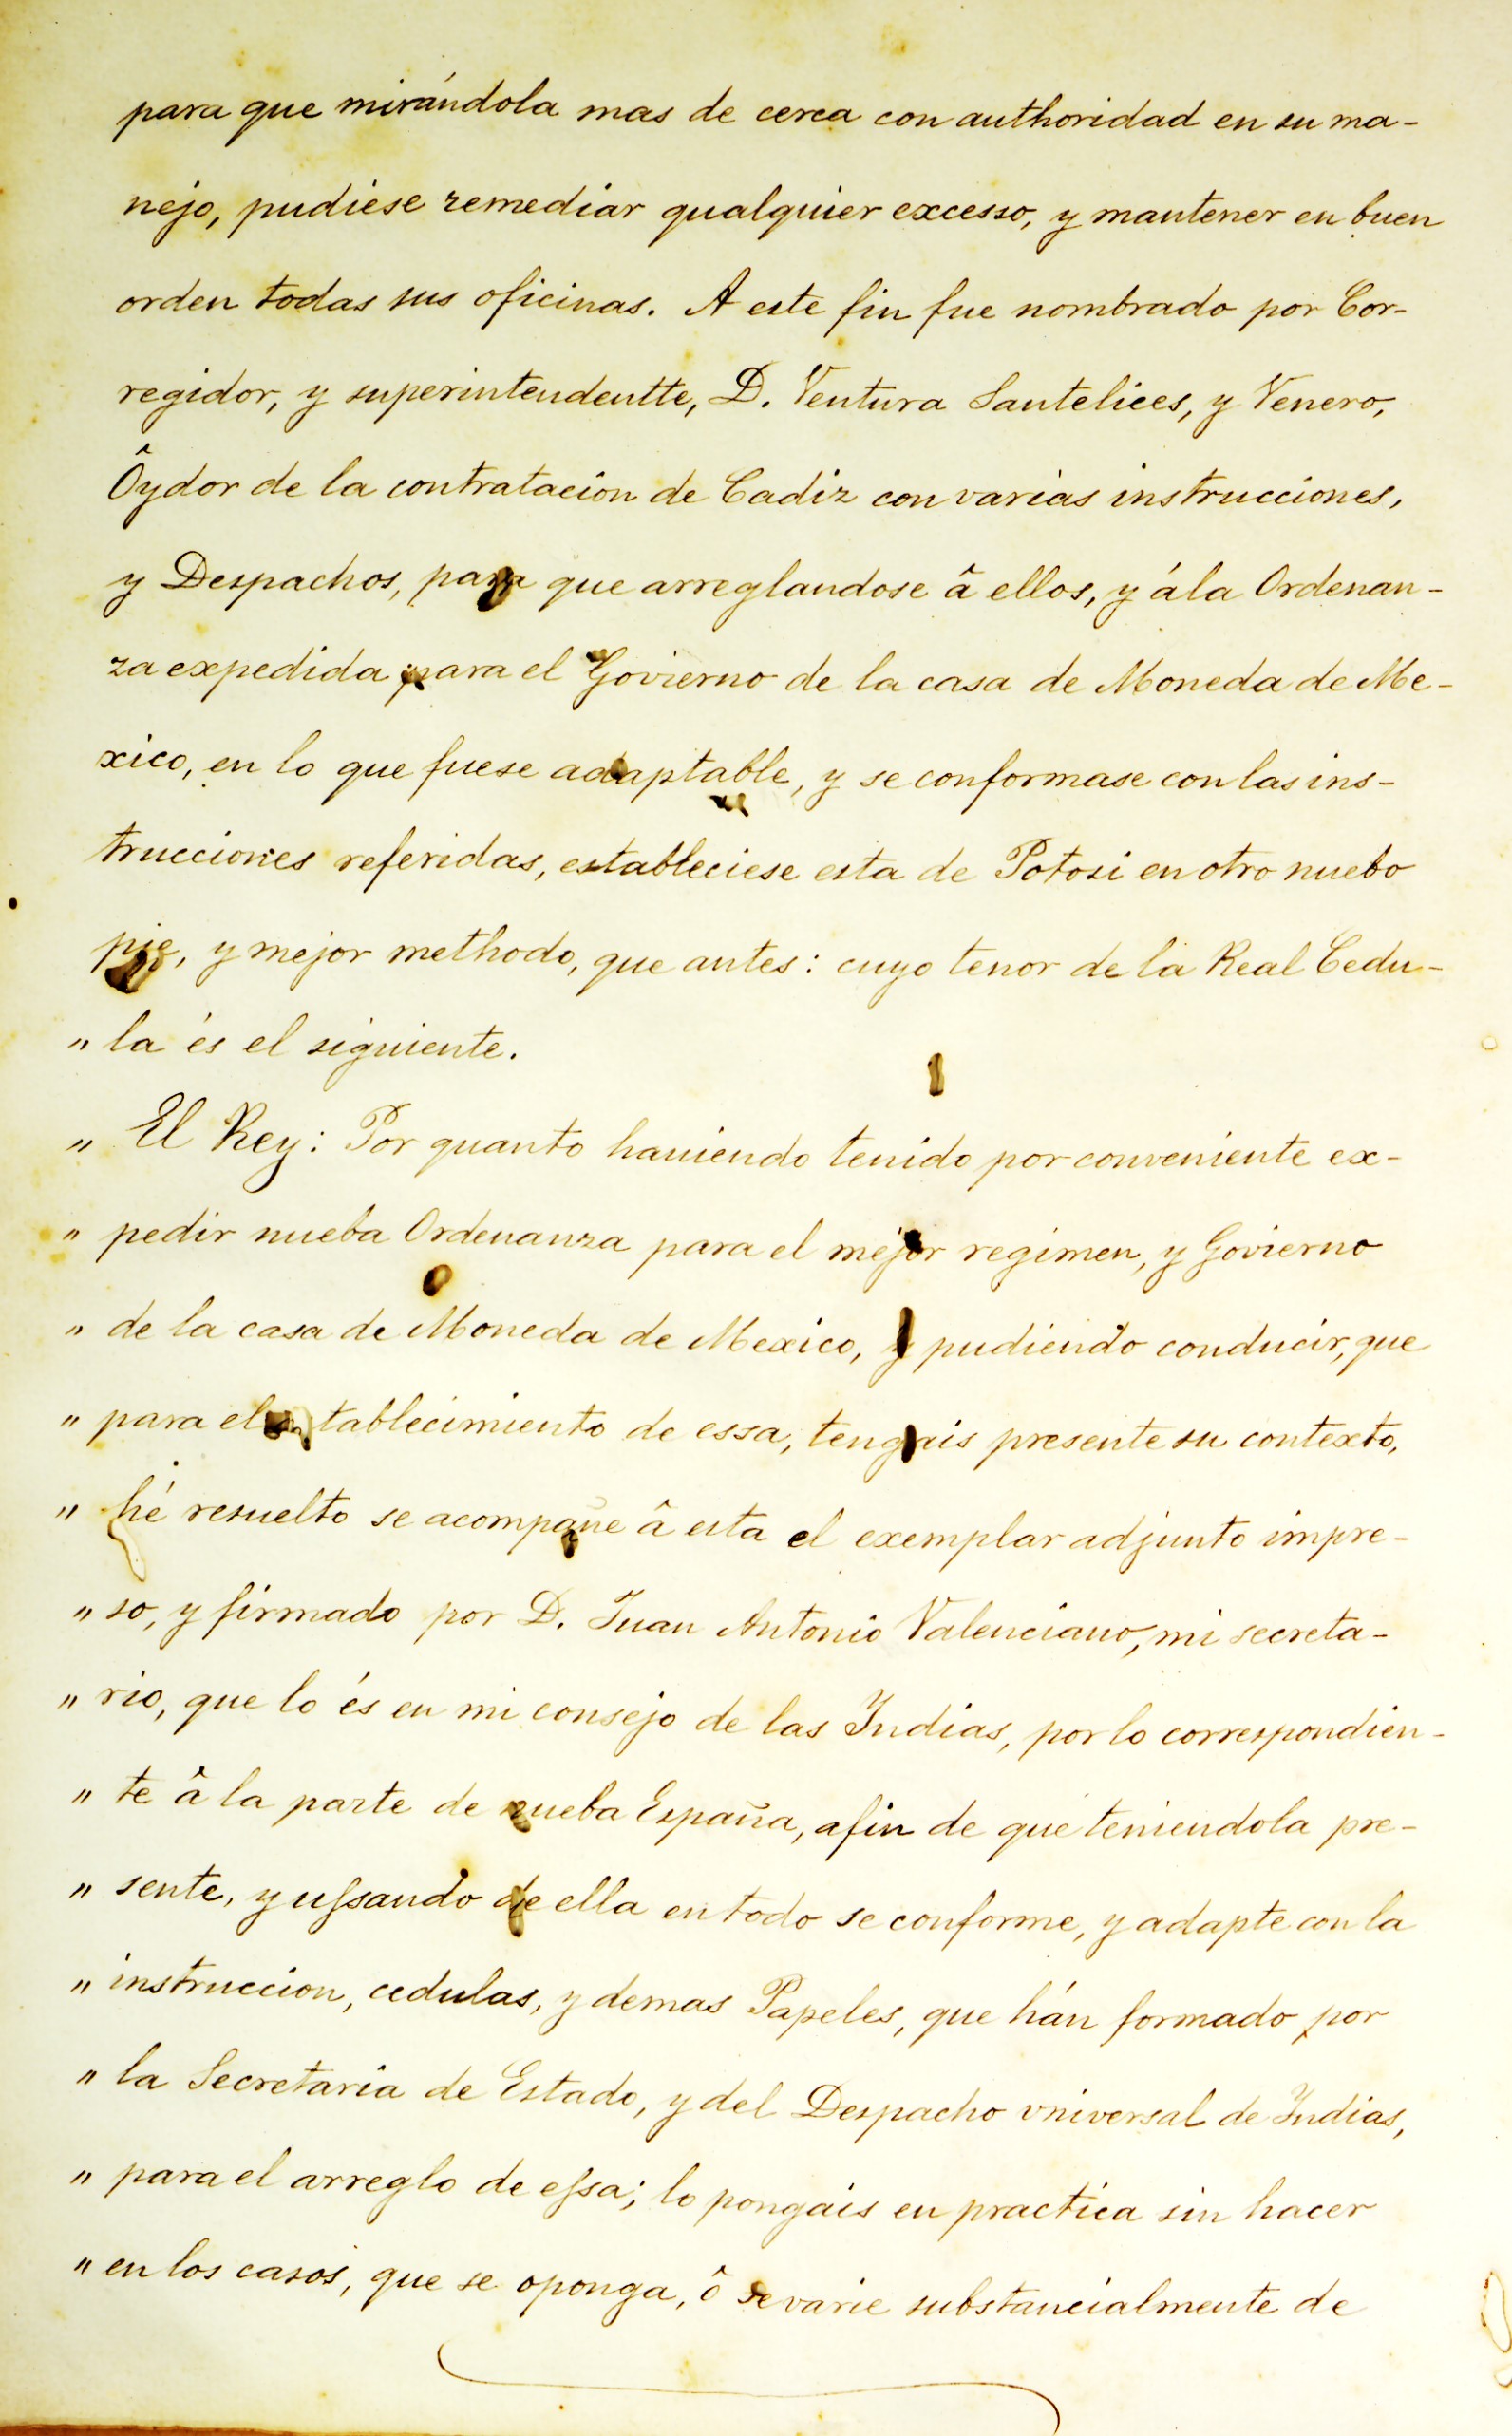 para que mirándola mas de cerca con authoridad en su ma-
nejo, pudiese remediar qualquier excesso, y mantener en buen
orden todas sus oficinas. A este fin fue nombrado por Cor-
regidor, y superintendentte, D. Ventura Santelices, y Venero,
Ôydor de la contratacion de Cadiz con varias instrucciones,
y Despachos, para que arreglandose â ellos, y á la Ordenan-
za expedida para el Govierno de la casa de Moneda de Me-
xico, en lo que fuese adaptable, y se conformase con las ins-
trucciones referidas, estableciese esta de Potosi en otro nuebo
pie, y mejor methodo, que antes: cuyo tenor de la Real Cedu-
" la és el siguiente.
" El Rey: Por quanto haviendo tenido por conveniente ex-
" pedir nueba Ordenanza para el mejor regimen, y Govierno
" de la casa de Moneda de Mexico, y pudiendo conducir, que
" para el establecimiento de essa, tengais presente su contexto,
" hé resuelto se acompañe â esta el exemplar adjunto impre-
" so, y firmado por D. Juan Antonio Valenciano, mi secreta-
" rio, que lo és en mi consejo de las Indias, por lo correspondien-
" te â la parte de nueba España, afin de que teniendola pre-
" sente, y uſsando de ella en todo se conforme, y adapte con la
" instruccion, cedulas, y demas Papeles, que hán formado por
" la Secretaria de Estado, y del Despacho vniversal de Indias,
" para el arreglo de eſsa; lo pongais en practica sin hacer
" en los casos, que se oponga, ô se varie substancialmente de